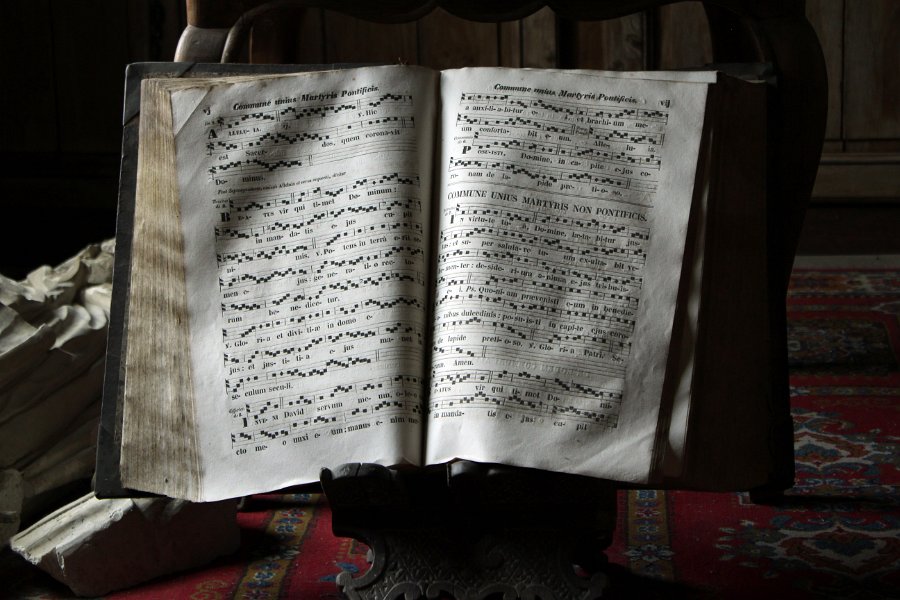 vj Commune unius Martyris Pontificis.
ALLELUIA. ℣. Hic
est Sacer- dos, quem corona-vit
Do- minus.
Tractus
BE- ATUS vir qui ti-met Do- minum:
in man-da- tis e- jus cu-pit
ni- mis. ℣. Po- tens in terrâ e-rit se-
men e- jus: ge-ne-ra-ti-o rec-to-
rum be- ne-dice-tur.
℣. Glo- ri-a et divi-ti-æ in domo e-
jus: et jus-ti-ti-a e- jus ma-net in
sæ-culum sæcu-li.
INVE-NI David servum me-um, o-le-o san-
cto me- o unxi e-um; manus e-nim me-
Commune unius Martyris Pontificis. vij
a auxi-li-a-bi-tur e- i, et brachi-um me-
um conforta- bit e- um. Alle- lu-ia.
POSU-ISTI, Do-mine, in ca-pite e-jus co-
ro-nam de la- pide pre-ti-o-so.
COMMUNE UNIUS MARTYRIS NON PONTIFICIS.
IN virtu-te tu- â, Do-mine, læta-bi-tur jus-
tus: et su- per saluta-re tu- um ex-ulta-bit ve-
he-men-ter: de-side- ri-um a-nimæ e- jus tribu-is-
ti e- i. Ps. Quo-ni-am præve-nisti e-um in benedic-
ti-o-nibus dulcedinis: po-su-is-ti in capi-te ejus coro-
nam de lapide preti-o-so. ℣. Glo-ri-a Patri. Se-
Amen.
BE-ATUS vir qui ti-met Do- mi-
in manda- tis e- jus cu-pit